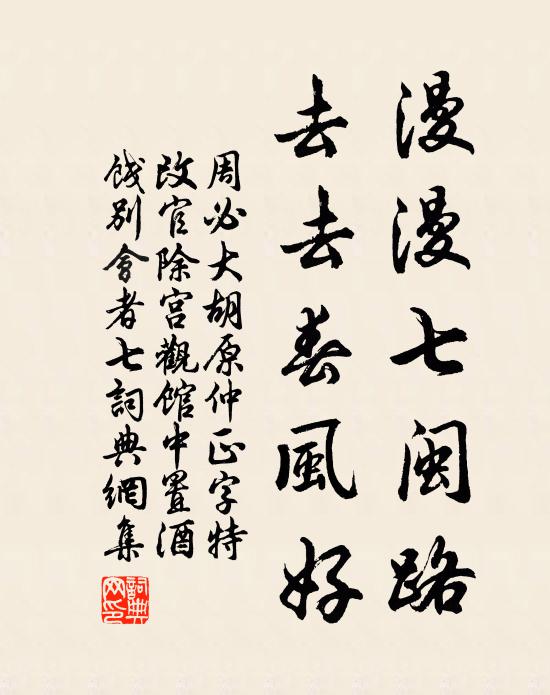 漫漫七閩路
去去春風好
周必大胡原仲正字特
改官除宮觀館中置酒
餞別會者七詞典網集
詞典網印